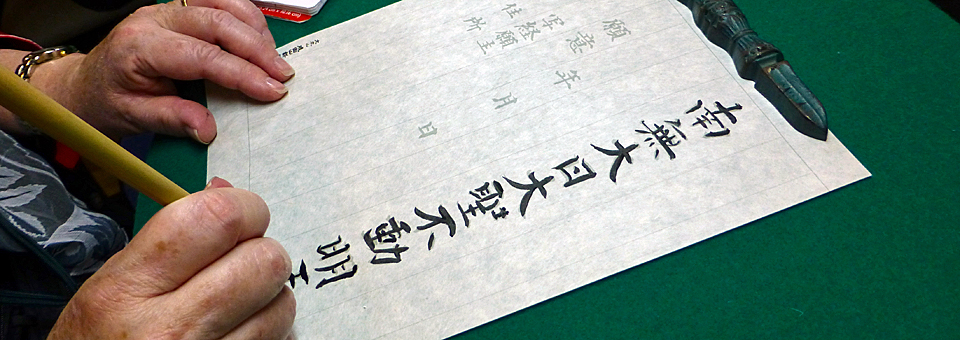 南無大日大聖不動明王
年 月 日
願意
写経願主
住所